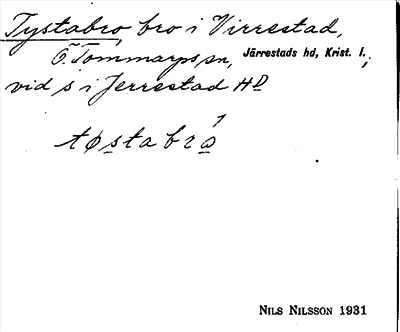 Tystabro bro i Virrestad,
Ö. Tommarps sn, Järrestads hd, Krist. l.;
vid s i Jerrestad HD
tøstabro
NILS NILSSON 1931